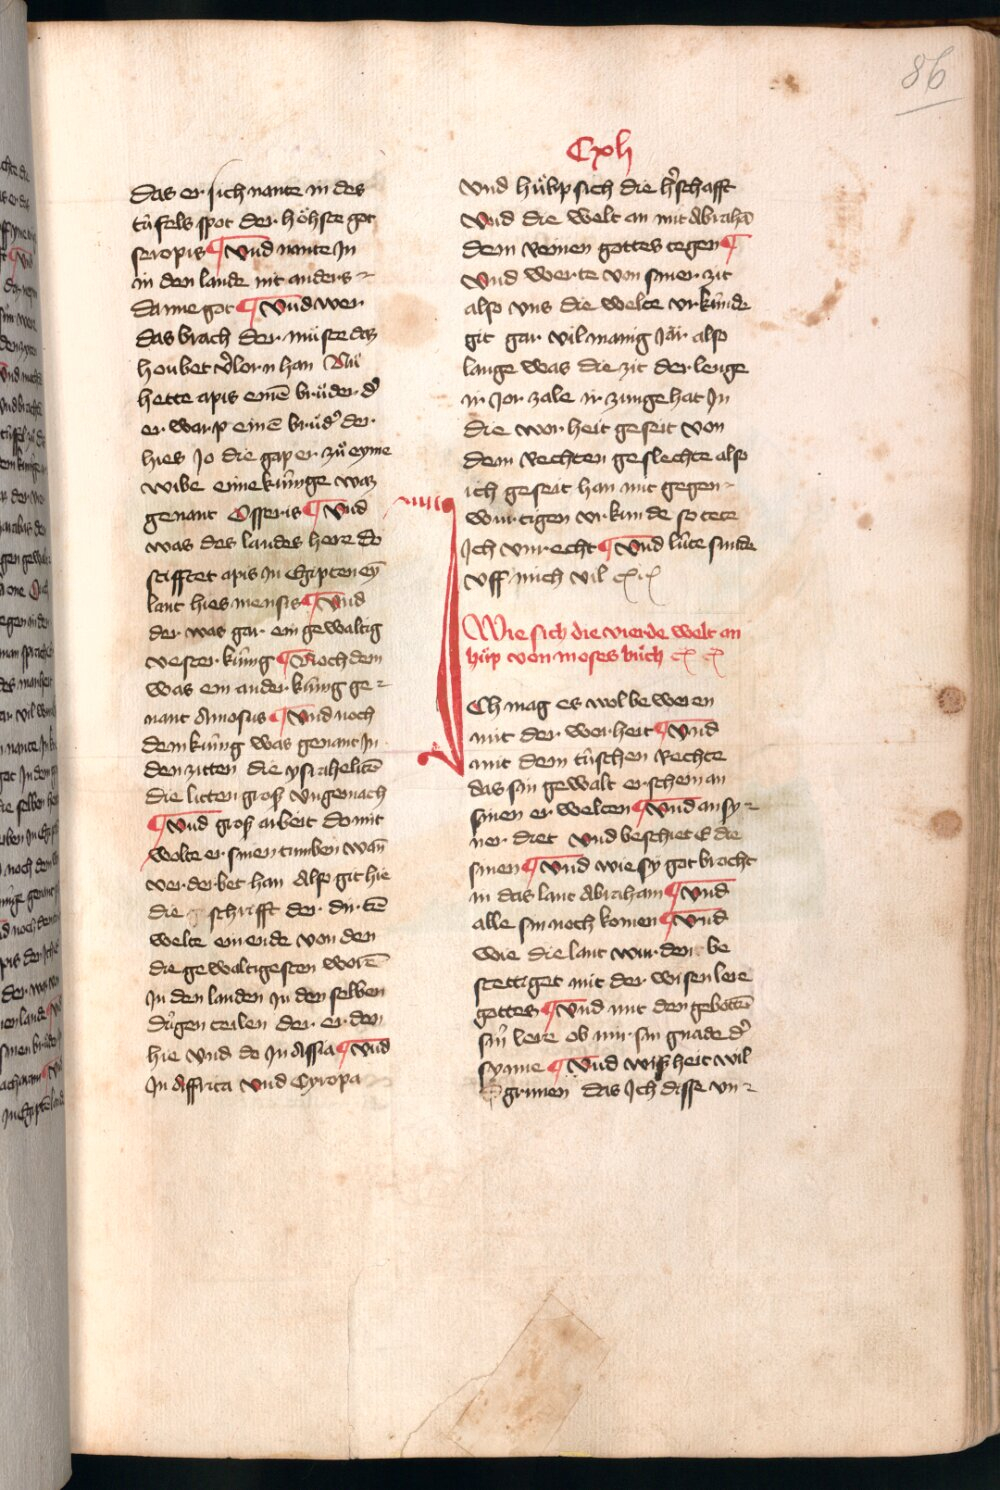 86
Cxlj
Das er sich nante in des
túfels spot der höhste got
serapis ¶ Vnd nante In
in den lande nit anders
danne got ¶ Vnd wer
das brach der müste daz
houbet v͛lorn han Nu
hette apis einē brüder d͛
er warp einē brüd͛ der
hies Jo die gap er zů eyme
wibe eime kúnige waz
genant Osseris ¶ Vnd
was des landes herre do
stifftet apis In Egipten eȳ
lant hies mensis ¶ Vnd
der was gar ein gewaltig
vester kúnig ¶ Noch dem
was ein ander kúnig ge-
nant Amosus ¶ Vnd noch
dem kúnig was genant In
den zitten die ysrahelitē
die litten gros vngemach
¶ Vnd gros arbeit do mit
wolte er sinen tumben wan̄
verderbet han Also git hie
die schrifft der dirtē
welte ein ende von den
die gewaltigesten worē
In den landen In den selben
drigen teilen der erden
hie vnd do In Assia ¶ Vnd
In Affrica vnd Eyropa
Vnd hůbp sich die h͛schafft
Vnd die welt an mit Abrahā
dem reinen gottes tegen ¶
Vnd werte von siner zit
also vns die welte vrkúnde
git gar vil manig Jar also
lange was die zit der lenge
ir Jor zale ir zunge hat In
die worheit geseit von
dem rechten geslechte also
ich geseit han mit gegen-
wurtigen vrkunde so tete
Ich vnrecht ¶ Vnd lúte sinde
vff mich vil
Wie sich die vierde welt an
hůp von moses bůch
Ich mag es wol beweren
mit der worheit ¶ Vnd
mit dem tútschen Rechte
das sin gewalt erschein an
sinen erwelten ¶ Vnd an sy-
ner diet vnd beschiet E die
sinen ¶ Vnd wie sy got brocht
in das lant Abraham ¶ Vnd
alle sin noch komen ¶ Vnd
wie die lant wurden be
stettiget mit der wisen lere
gottes ¶ Vnd mit den gebottē
sin͛ lere ob mir sin gnade d͛
synne ¶ Vnd wisheit wil
grinnen das Ich disse vn-